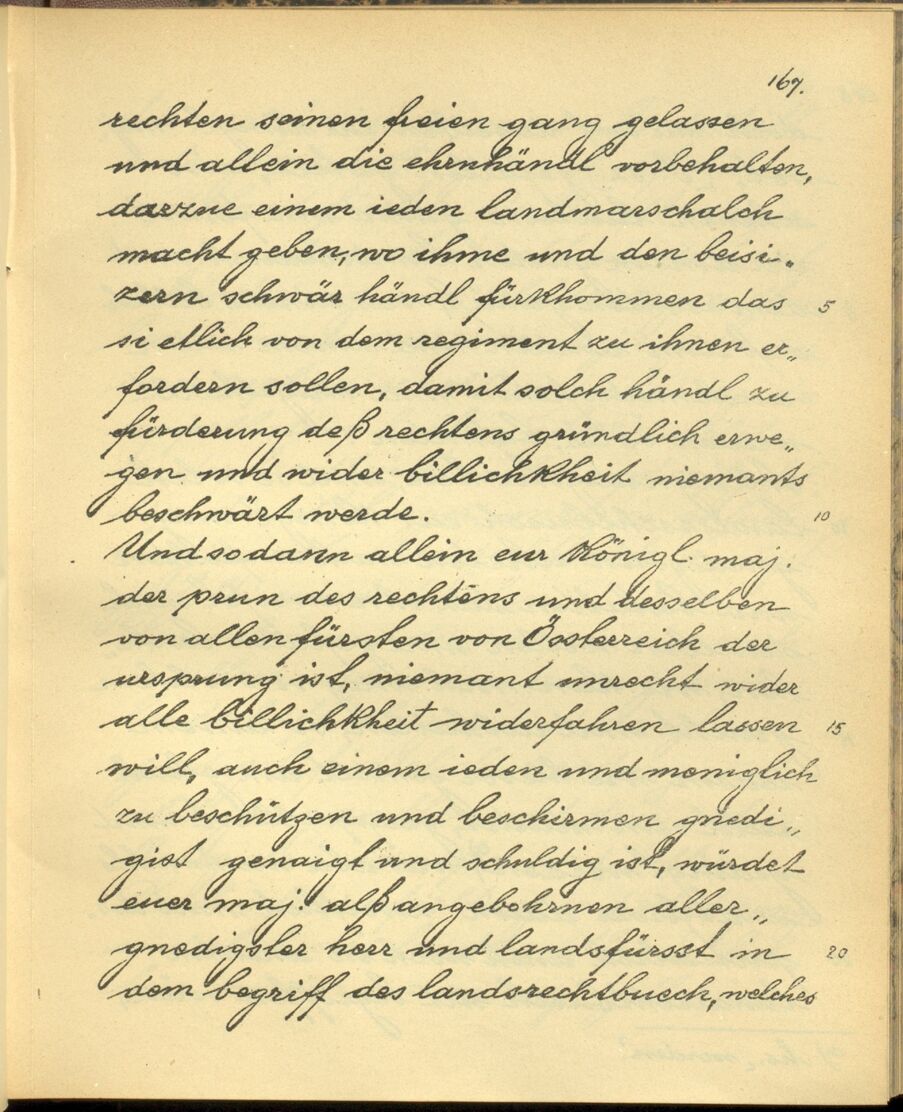 167.
rechten seinen freien gang gelassen
und allein die ehrnhändl vorbehalten,
darzue einem ieden landmarschalch
macht geben, wo ihme und den beisi„
zern schwär händl fürkhommen das 5
si etlich von dem regiment zu ihnen er„
fordern sollen, damit solch händl zu
fürderung deß rechtens gründlich erwe„
gen und wider billichkheit niemants
beschwärt werde. 10
Und sodann allein eur Königl. maj.
der prun des rechtens und desselben
von allen fürsten von Össterreich der
ursprung ist, niemant unrecht wider
alle billichkheit widerfahren lassen 15
will, auch einem ieden und meniglich
zu beschützen und beschirmen gnedi„
gist genaigt und schuldig ist, würdet
euer maj. alß angebohrnen aller„
gnedigster herr und landsfürsst in 20
dem begriff des landsrechtbuech, welches